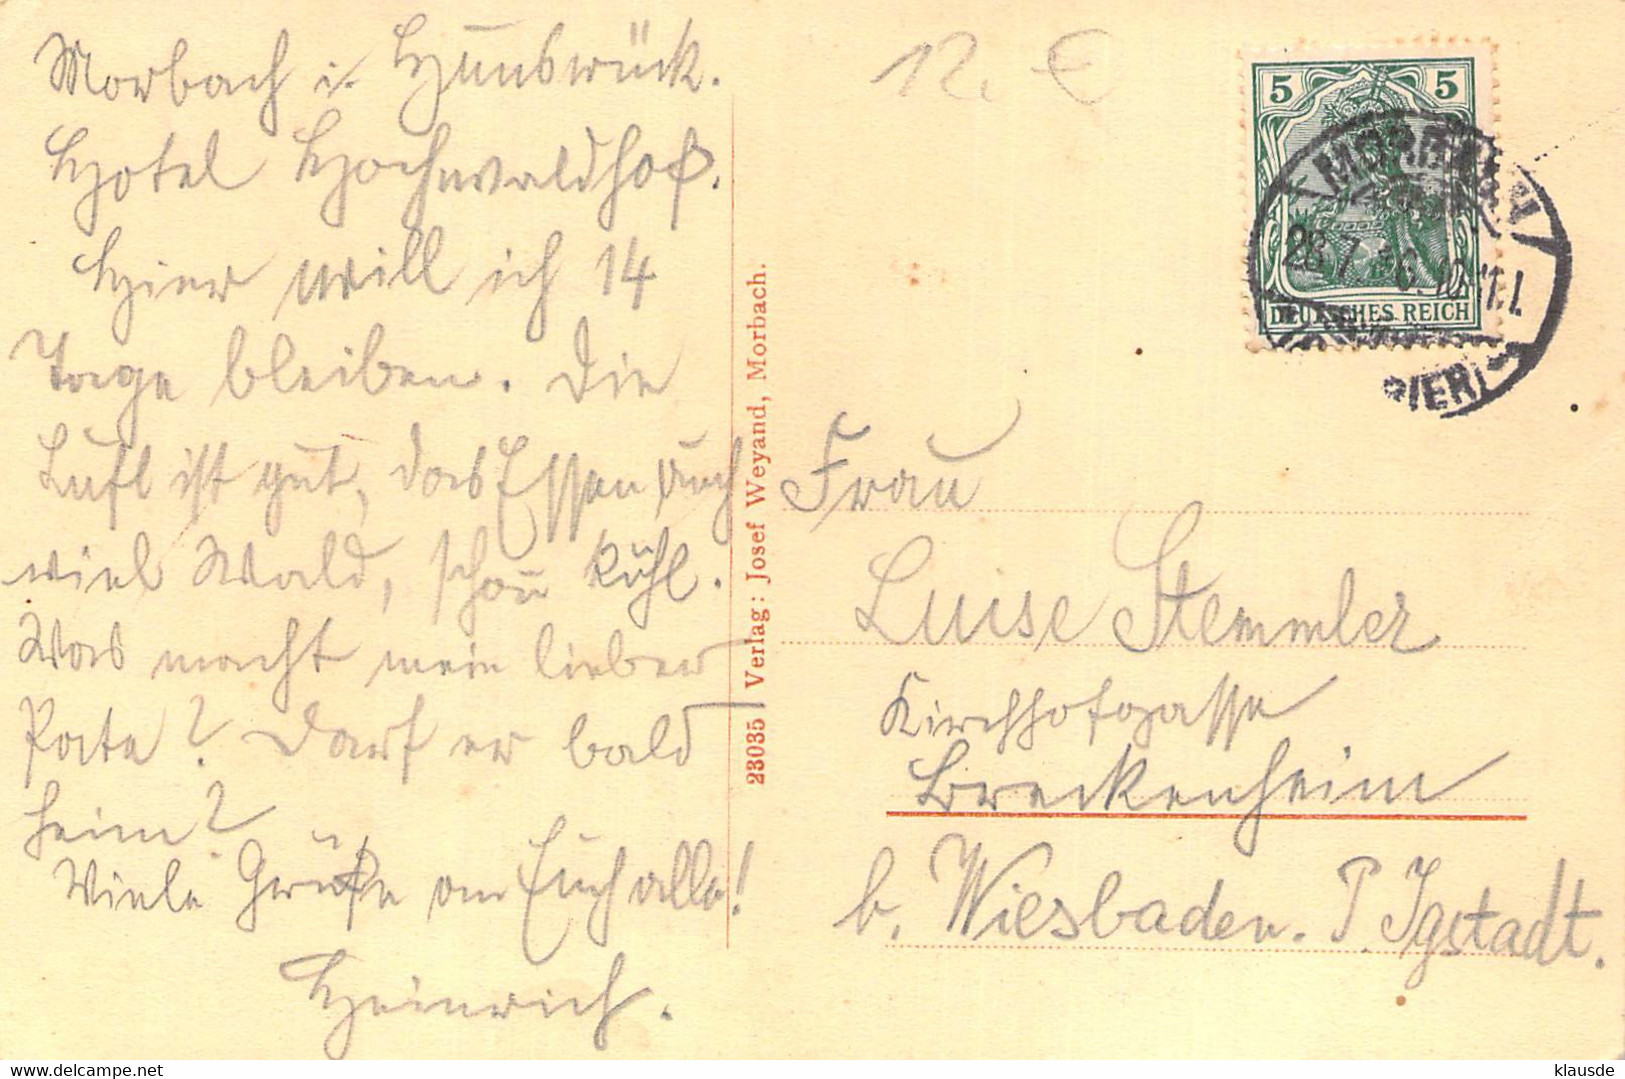 Morbach i. Hunsrück.
Hotel Hochwaldhof.
Hier will ich 14
Tage bleiben. Die
Luft ist gut, das Essen auch
viel Wald, schön kühl.
Was macht mein lieber
Pate? Darf er bald
heim?
Viele Grüße an Euch alle!
Heinrich.
23035 Verlag: Josef Weyand, Morbach.
12. €
5 5
DEUTSCHES REICH
28.7.
11.V.
Frau
Luise Stemmler
Kirchhofgasse
Breckenheim
b. Wiesbaden. P. Igstadt.
klausde